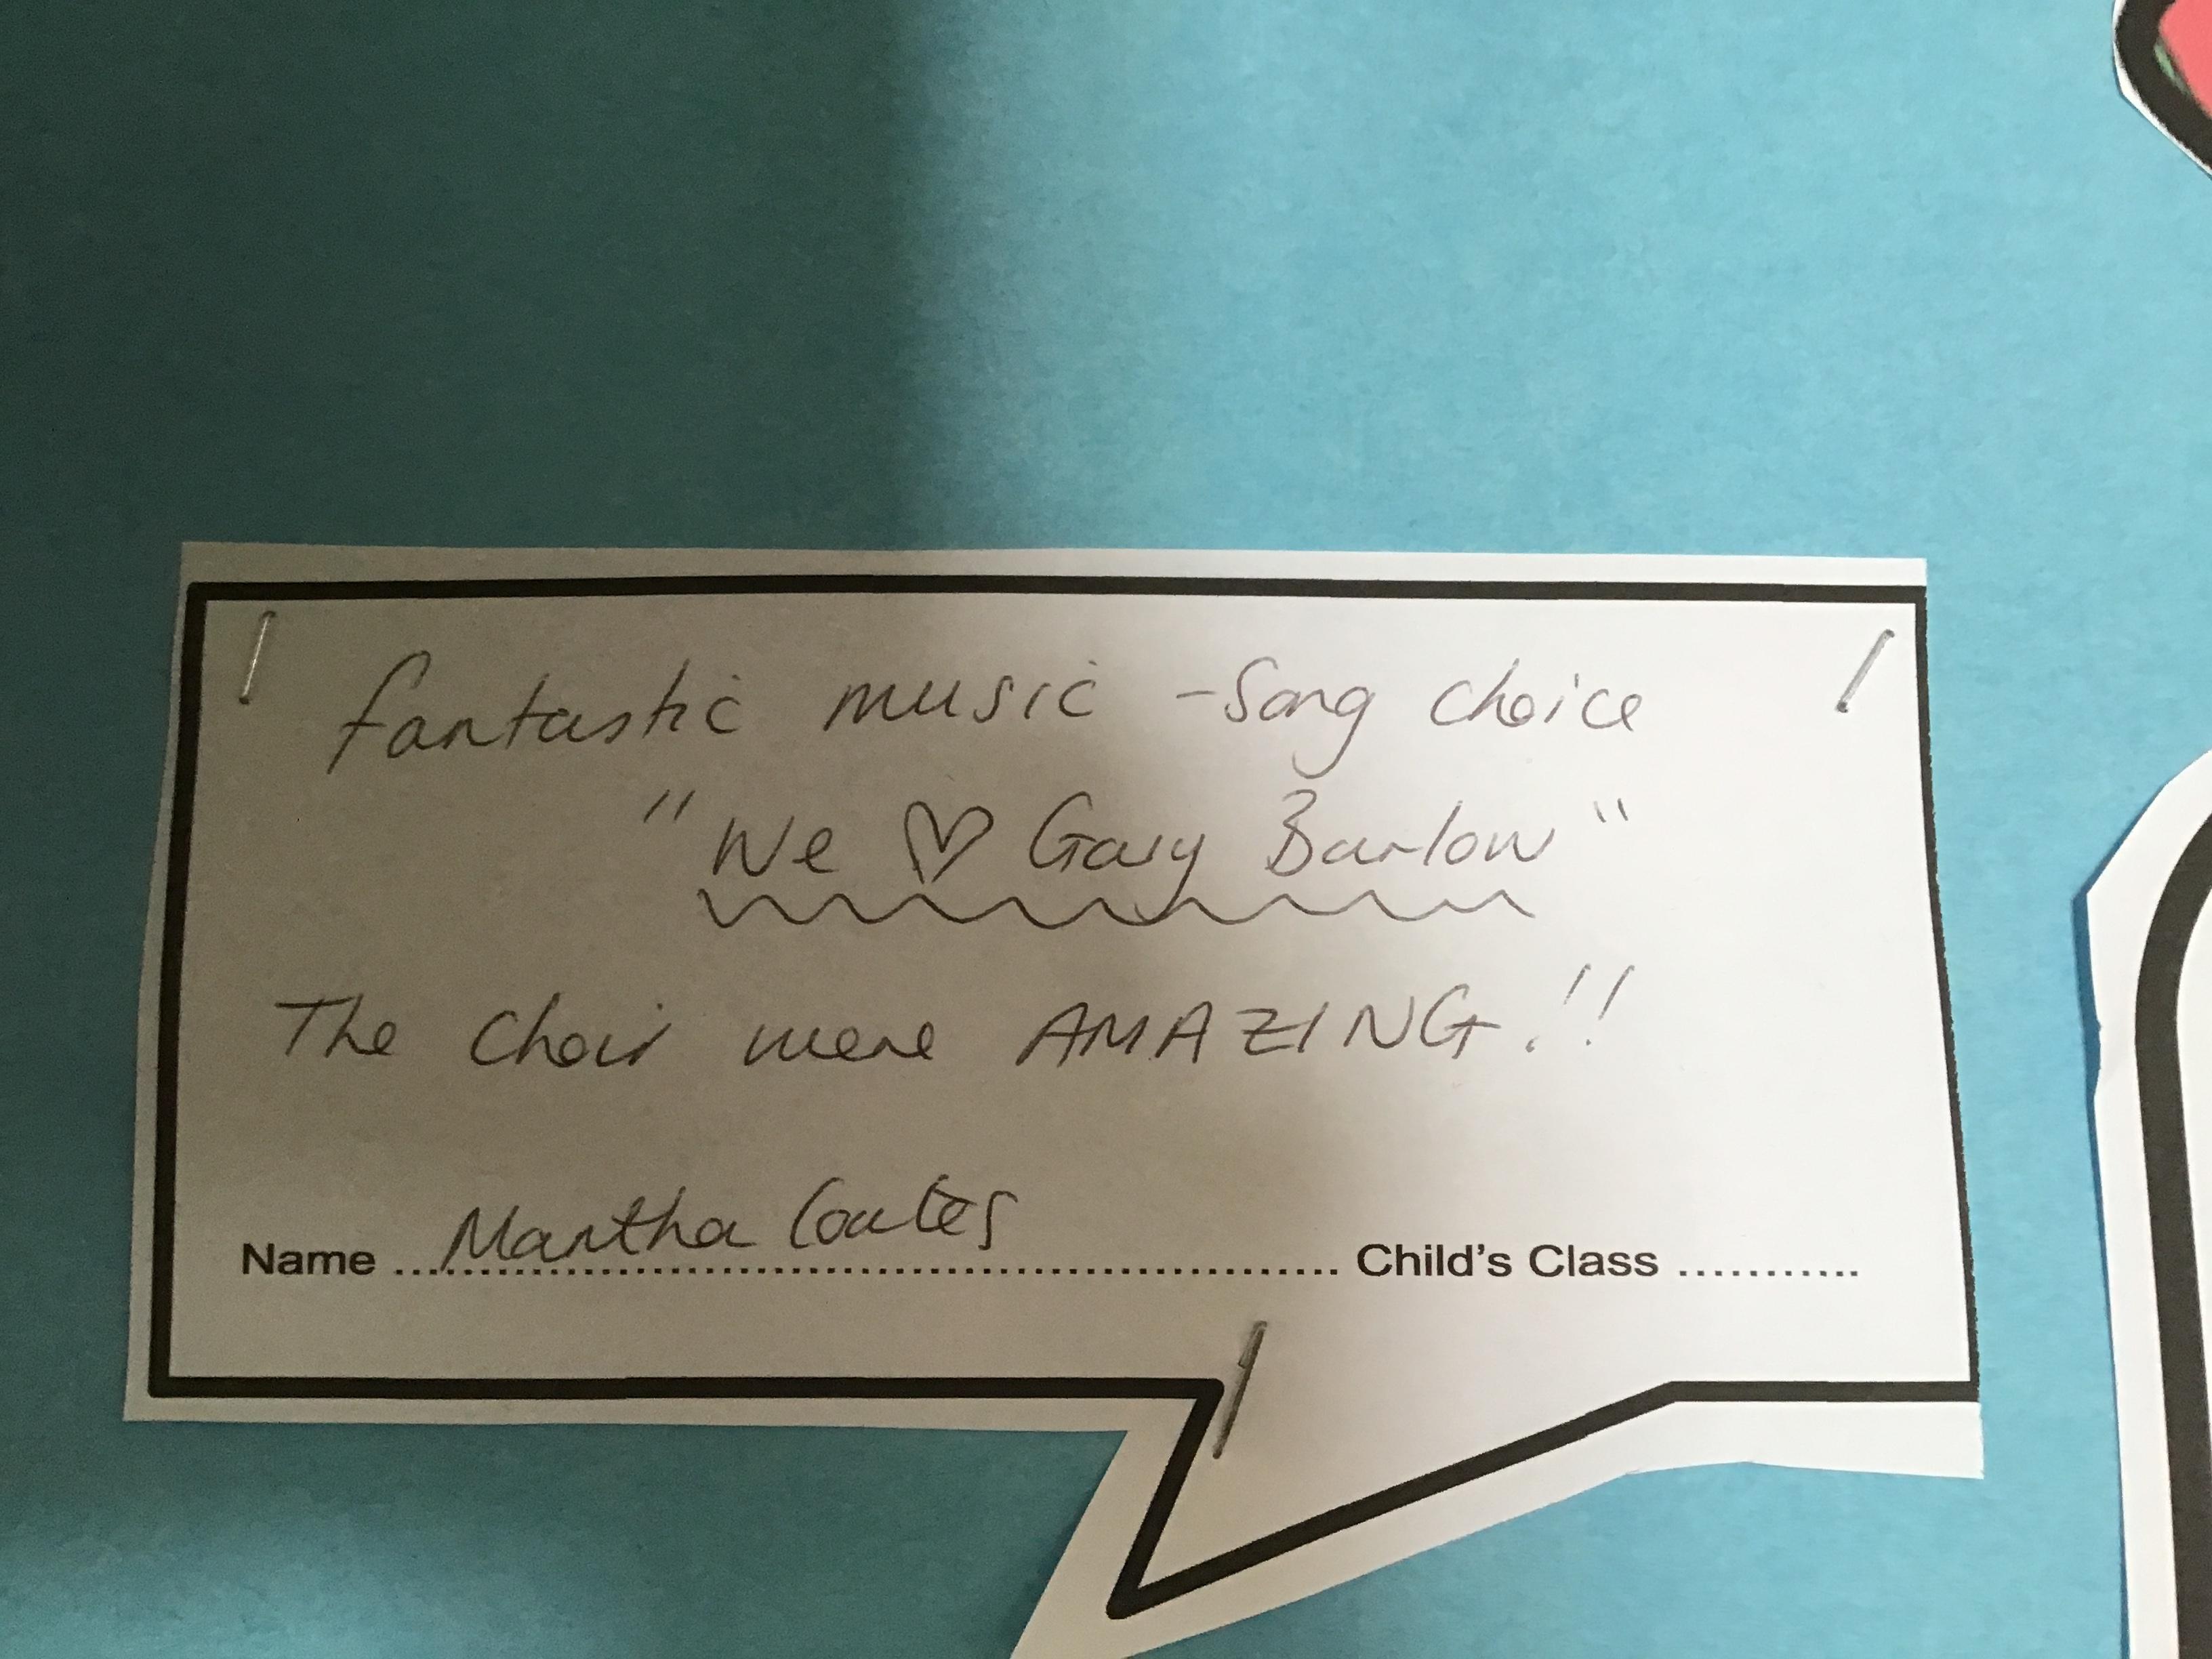 fantastic music - Song choice
"We ♡ Gary Barlow"
The Choir were AMAZING!!
Name ...Martha Coates........................ Child's Class ...........